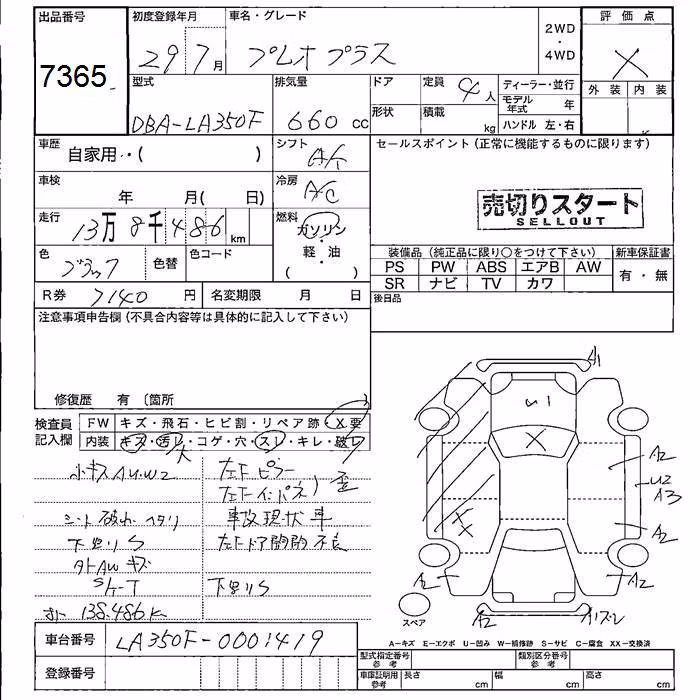 出品番号
7365
初度登録年月
29 7月
車名・グレード
プレオプラス
2WD
・
4WD
評価点
X
外装 内装
型式
DBA-LA350F
排気量
660 cc
ドア
形状
定員
4人
積載
kg
ディーラー・並行
モデル年式 年
ハンドル 左・右
車歴
自家用・・( )
シフト
A/T
セールスポイント (正常に機能するものに限ります)
車検
年 月( 日)
冷房
A/C
売切りスタート
SELLOUT
走行
13万8千486 km
燃料
ガソリン
・
軽・油
( )
色
ブラック
色替
色コード
装備品 (純正品に限り○をつけて下さい)
新車保証書
PS PW ABS エアB AW
有・無
SR ナビ TV カワ
R券 7140 円
名変期限 月 日
後日品
注意事項申告欄 (不具合内容等は具体的に記入して下さい)
修復歴 有 〔箇所 〕
検査員
記入欄
FW キズ・飛石・ヒビ割・リペア跡・X要
内装 キズ・汚レ・コゲ・穴・スレ・キレ・破レ
大
小キズAU.W2
左Fピラー
左Fインパネ) 歪
シート破れ ヘタリ
事故現状車
下廻りS
左Fドア開閉不良
外AWキズ
下廻りS
138.486K
A1
U1
X
A2
U2
A3
A2
A2
A2
A2
スペア
A―キズ E―エクボ U―凹み W―補修跡 S―サビ C―腐食 XX―交換済
車台番号
LA350F-0001419
登録番号
型式指定番号
参考
類別区分番号
参考
車庫証明用
参考
長さ cm
幅 cm
高さ cm